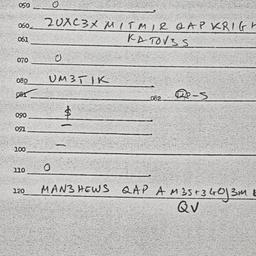 050 0
060 2UXC3X MITMIR QAP KRIGH
061 KATOV3S
070 0
080 UM3TIK
081 082 QP-S
090 $
091 —
100 —
110 0
120 MAN3HEWS QAP A M3S+34OJ3M
QV